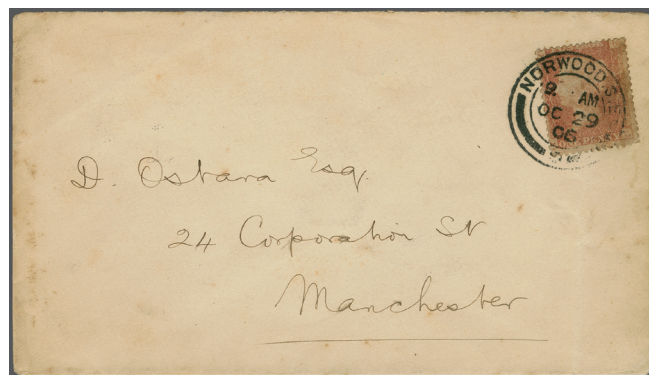 NORWOOD S.E
9. AM
OC 29
06
D. Ostara Esq.
24 Corporation St
Manchester